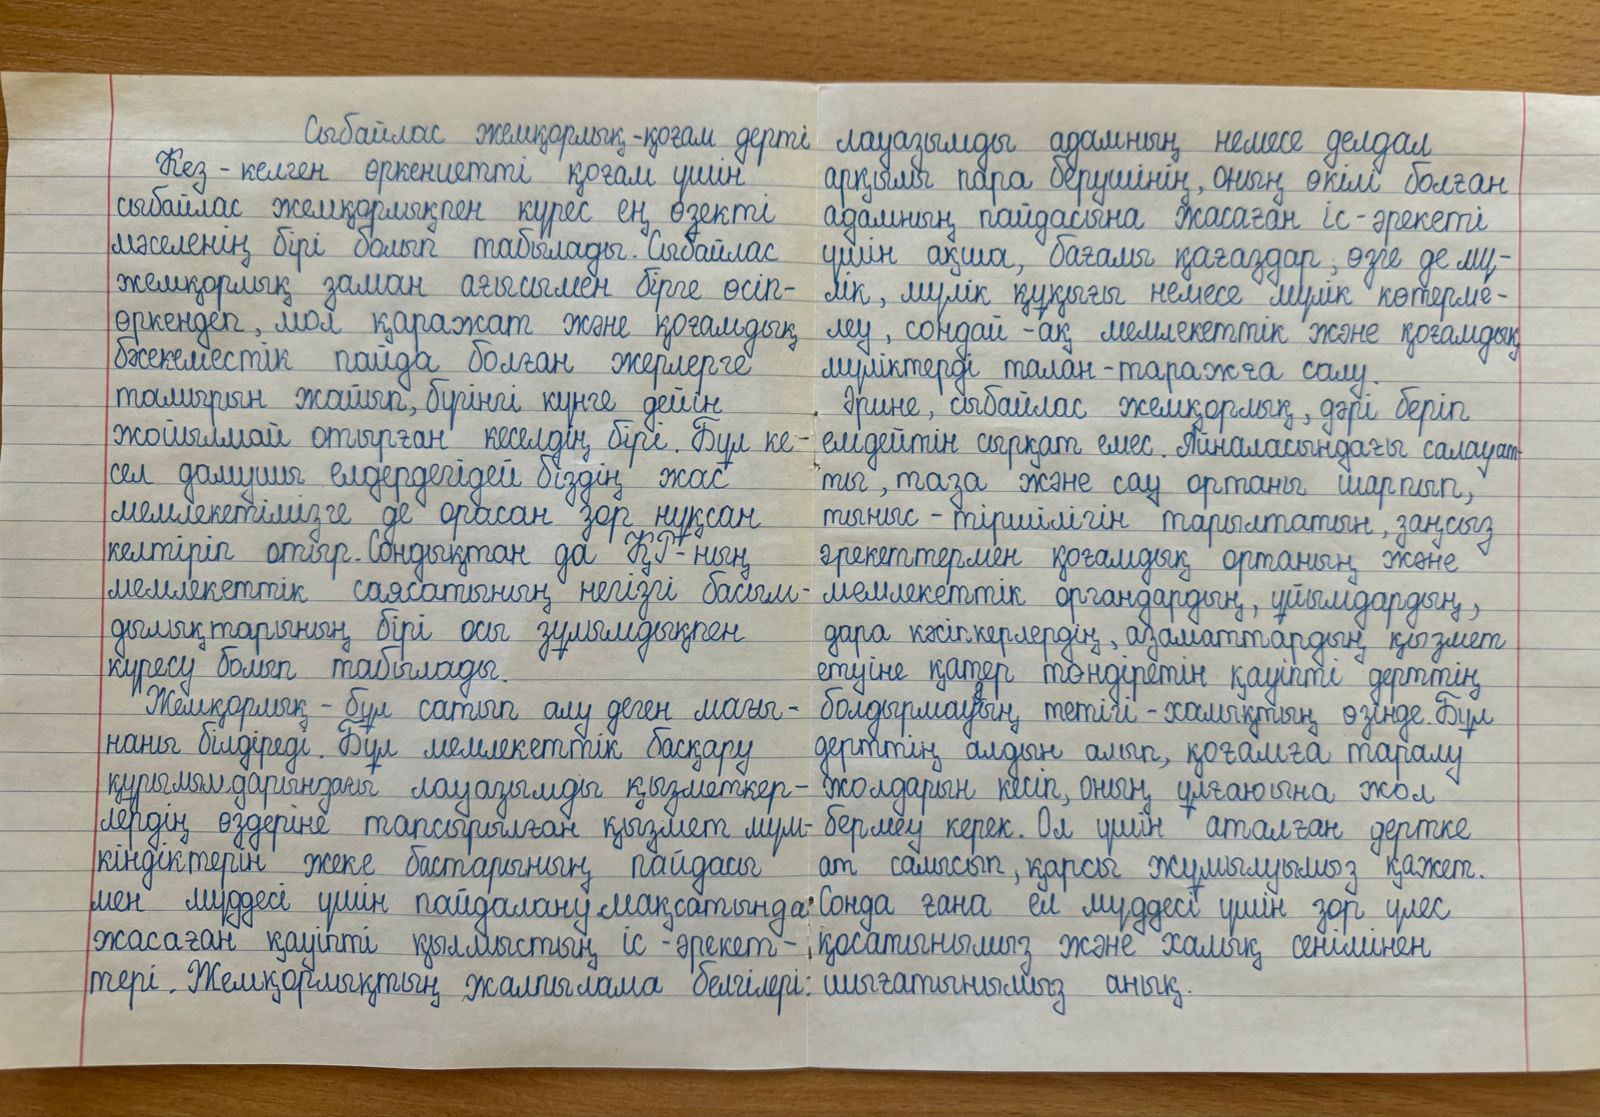 Сыбайлас жемқорлық-қоғам дерті
Кез-келген өркениетті қоғам үшін
сыбайлас жемқорлықпен күрес ең өзекті
мәселенің бірі болып табылады. Сыбайлас
жемқорлық заман ағысымен бірге өсіп-
өркендеп, мол қаражат және қоғамдық
бәсекеместік пайда болған жерлерге
тамырын жайып, бүгінгі күнге дейін
жойылмай отырған кеселдің бірі. Бұл ке-
сел дамушы елдердегідей біздің жас
мемлекетімізге де орасан зор нұқсан
келтіріп отыр. Сондықтан да ҚР-ның
мемлекеттік саясатының негізгі басым-
дылықтарының бірі осы зұлымдықпен
күресу болып табылады.
Жемқорлық - бұл сатып алу деген мағы-
наны білдіреді. Бұл мемлекеттік басқару
құрылымдарындағы лауазымды қызметкер-
лердің өздеріне тапсырылған қызмет мүм-
кіндіктерін жеке бастарының пайдасы
мен мүддесі үшін пайдалану мақсатында
жасаған қауіпті қылмыстың іс-әрекет-
тері. Жемқорлықтың жалпылама белгілері:
лауазымды адамның немесе делдал
арқылы пара берушінің, оның өкілі болған
адамның пайдасына жасаған іс-әрекеті
үшін ақша, бағалы қағаздар, өзге де мү-
лік, мүлік құқығы немесе мүлік көтерме-
леу, сондай-ақ мемлекеттік және қоғамдық
мүліктерді талан-таражға салу.
Әрине, сыбайлас жемқорлық, дәрі беріп
емдейтін сырқат емес. Айналасындағы салауат-
ты, таза және сау ортаны шарпып,
тыныс-тіршілігін тарылтатын, заңсыз
әрекеттермен қоғамдық ортаның және
мемлекеттік органдардың, ұйымдардың,
дара кәсіпкерлердің, азаматтардың қызмет
етуіне қатер төндіретін қауіпті дерттің
болдырмаудың тетігі-халықтың өзінде. Бұл
дерттің алдын алып, қоғамға таралу
жолдарын кесіп, оның ұлғаюына жол
бермеу керек. Ол үшін аталған дертке
ат салысып, қарсы жұмылуымыз қажет.
Сонда ғана ел мүддесі үшін зор үлес
қосатынымыз және халық сенімінен
шығатынымыз анық.